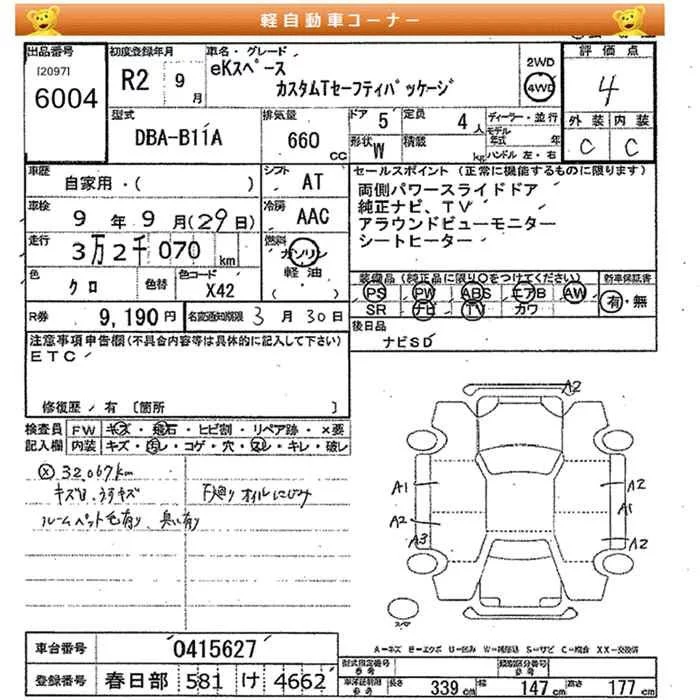 軽自動車コーナー
出品番号
[2097]
6004
初度登録年月
R2 9月
車名・グレード
eKスペース
カスタムTセーフティパッケージ
2WD
4WD
評価点
4
外装 内装
C C
型式
DBA-B11A
排気量
660 CC
ドア 5
定員 4人
形状 W
積載 kg
ディーラー・並行
モデル年式 年
ハンドル 左・右
車歴
自家用・( )
シフト AT
車検
9年9月(29日)
冷房 AAC
走行
3万2千070km
燃料
ガソリン
軽油
( )
色
クロ
色替
色コード
X42
R券 9,190円
名変通知期限 3月30日
セールスポイント (正常に機能するものに限ります)
両側パワースライドドア
純正ナビ、TV
アラウンドビューモニター
シートヒーター
装備品(純正品に限り○をつけてください)
PS PW ABS エアB AW
SR ナビ TV カワ
新車保証書
有・無
後日品
ナビSD
注意事項申告欄(不具合内容等は具体的に記入して下さい)
ETC
修復歴/有 [箇所 ]
検査員記入欄
FW キズ・飛石・ヒビ割・リペア跡・×要
内装 キズ・汚レ・コゲ・穴・スレ・キレ・破レ
ⓧ 32,067km
キズ有、うすキズ
下廻りオイルにじみ
ルームペット毛有り、臭い有り
A2
A1
A2
A3
A2
A1
A2
スペア
A=キズ E=エクボ U=凹み W=補修跡 S=サビ C=腐蝕 XX=交換済
車台番号 0415627
登録番号 春日部 581 け 4662
型式指定番号 参考
類別区分番号 参考
長さ 339 cm
幅 147 cm
高さ 177 cm